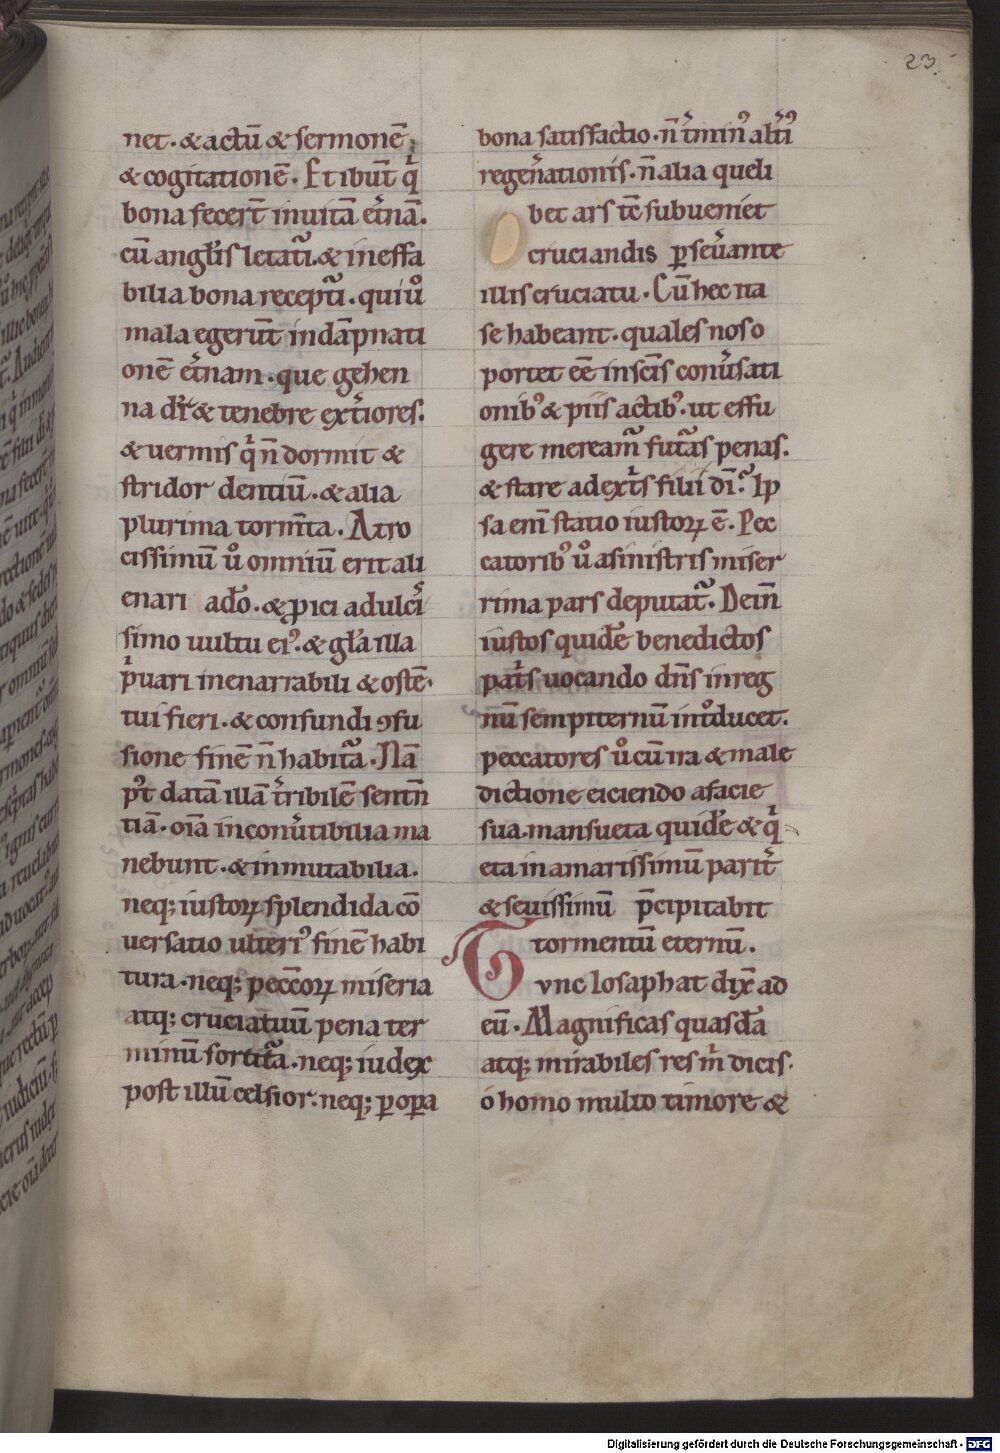 23.
net. & actū & sermonē
& cogitationē. Et ibūt q̍
bona fecer̄t in uitā et̍nā.
cū angl̍is letat᷑i. & ineffa
bilia bona recept᷑i. qui ů
mala egerūt in dāpnati
onē et̍nam. que gehen
na dr̄ & tenebre ext̍iores.
& uermis q̍ n̄ dormit &
stridor dentiū. & alia
plurima torm̄ta. Atro
cissimū ů omniū erit ali
enari a dō. & ꝓici a dulci
simo uultu ei᾿. & gl̄a illa
p̍uari inenarrabili & ostē
tui fieri. & confundi ꝯfu
sione finē n̄ habit᷑a. Nā
p᾿t datā illā t̍ribilē sentn̄
tiā. oīa inconu̍tibilia ma
nebunt. & inmutabilia.
neq; iustoꝝ splendida cō
uersatio ult̍eri᾿ finē habi
tura. neq; pecc̄oꝝ miseria
atq; cruciatuū pena ter
minū sortit᷑a. neq; iudex
post illū celsior. neq; ꝑ oꝑa
bona satisfactio. n̄ t̍min᾿ alt̍i᾿
regen̍ationis. n̄ alia queli
bet ars t̄c subueniet
cruciandis ꝑseu̍ante
illis cruciatu. Cū hec ita
se habeant. quales nos o
portet eē in sc̄is conu̍sati
onib᾿ & piis actib᾿. ut effu
gere meream᷑ fut᷑as penas.
& stare a dext̍is filii dī? Ip
sa enī statio iustoꝝ ē. Pec
catorib᾿ ů a sinistris miser
rima pars deputat᷑. Dein̄
iustos quidē benedictos
pat̍s uocando dn̄s in reg
nū sempiternū int̊ducet.
peccatores ů cū ira & male
dictione eiciendo a facie
sua. mansueta quidē & q̍
eta in amarissimū parit̍
& seuissimū p̄cipitabit
tormentū eternū.
Tvnc Iosaphat dix̄ ad
eū. Magnificas quasdā
atq; mirabiles res m̍ dicis.
o homo multo timore &
Digitalisierung gefördert durch die Deutsche Forschungsgemeinschaft - DFG